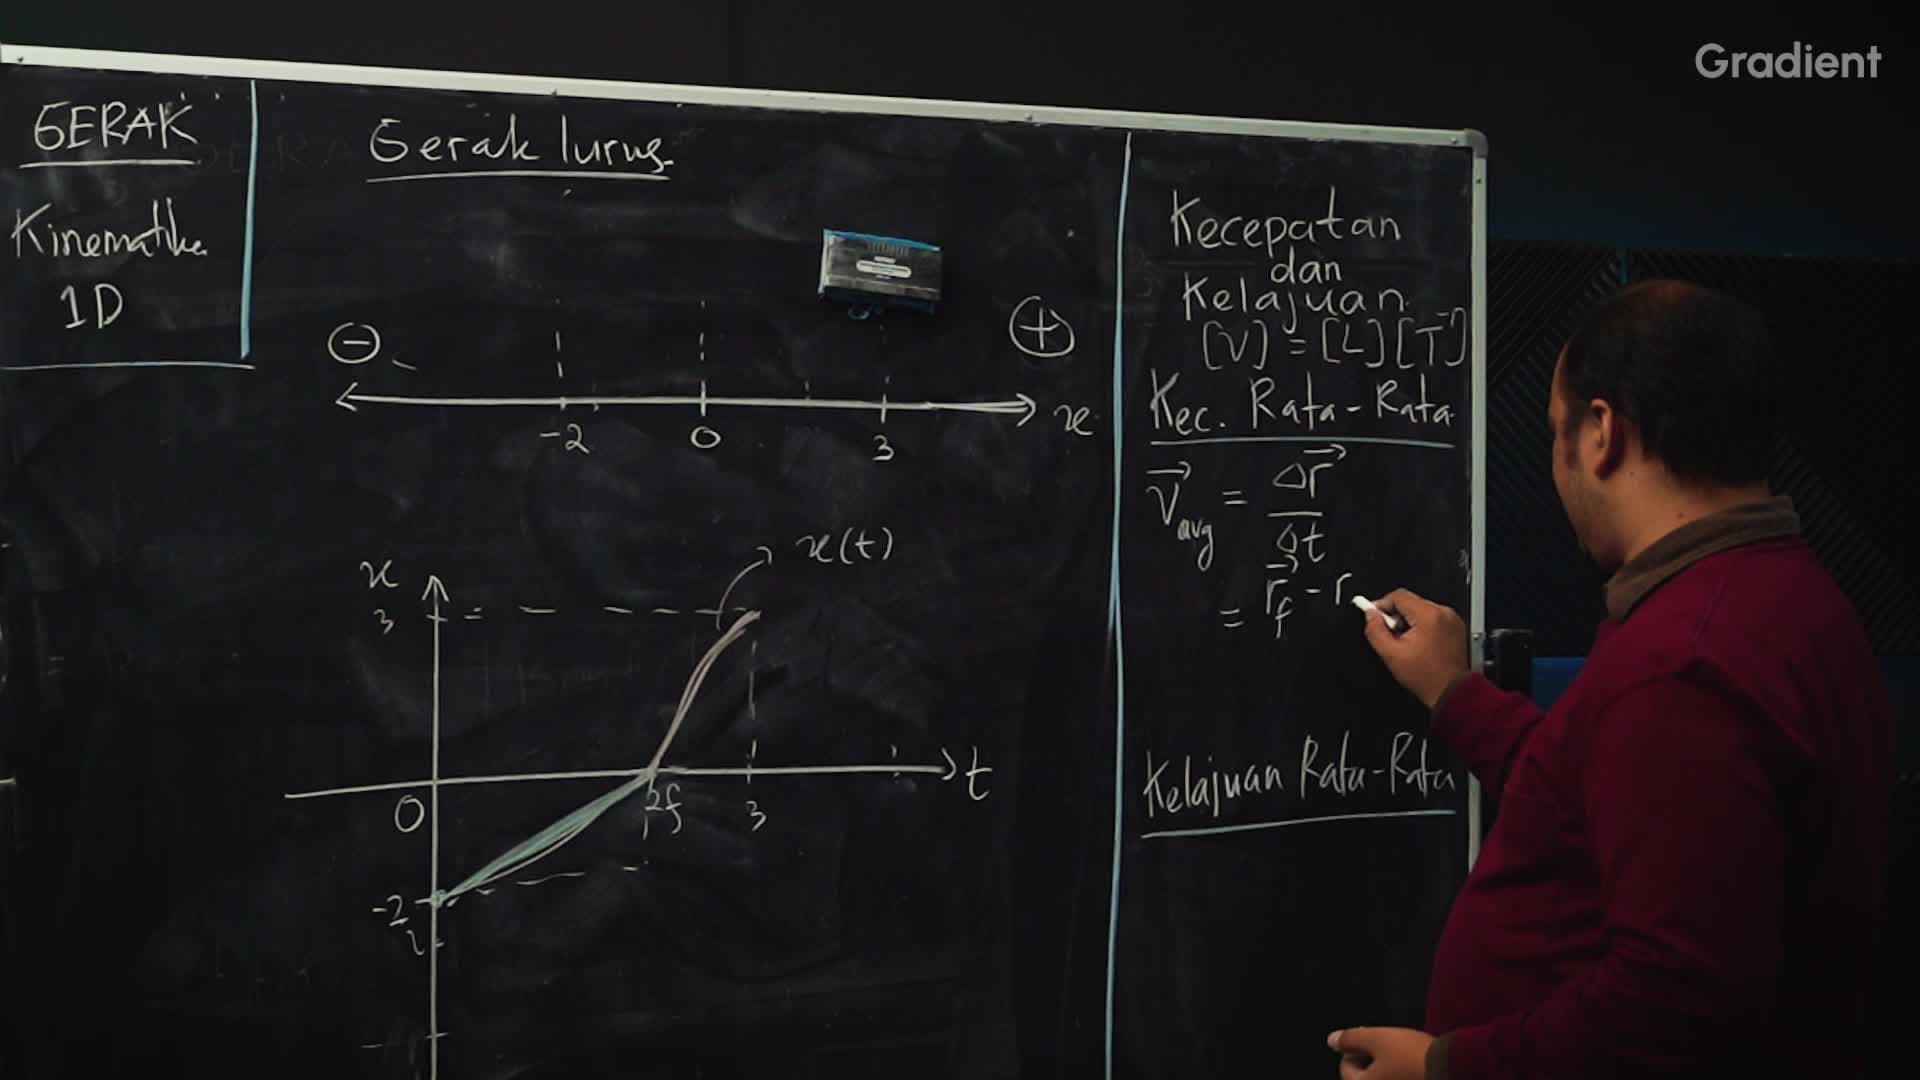 Gradient
GERAK
Kinematika
1D
Gerak lurus
⊖
⊕
-2 0 3 x
x
3
x(t)
0 3 t
-2
Kecepatan
dan
Kelajuan
[V] = [L][T⁻¹]
Kec. Rata-Rata
V⃗avg = Δr⃗
Δt
= r⃗f - r
Kelajuan Rata-Rata